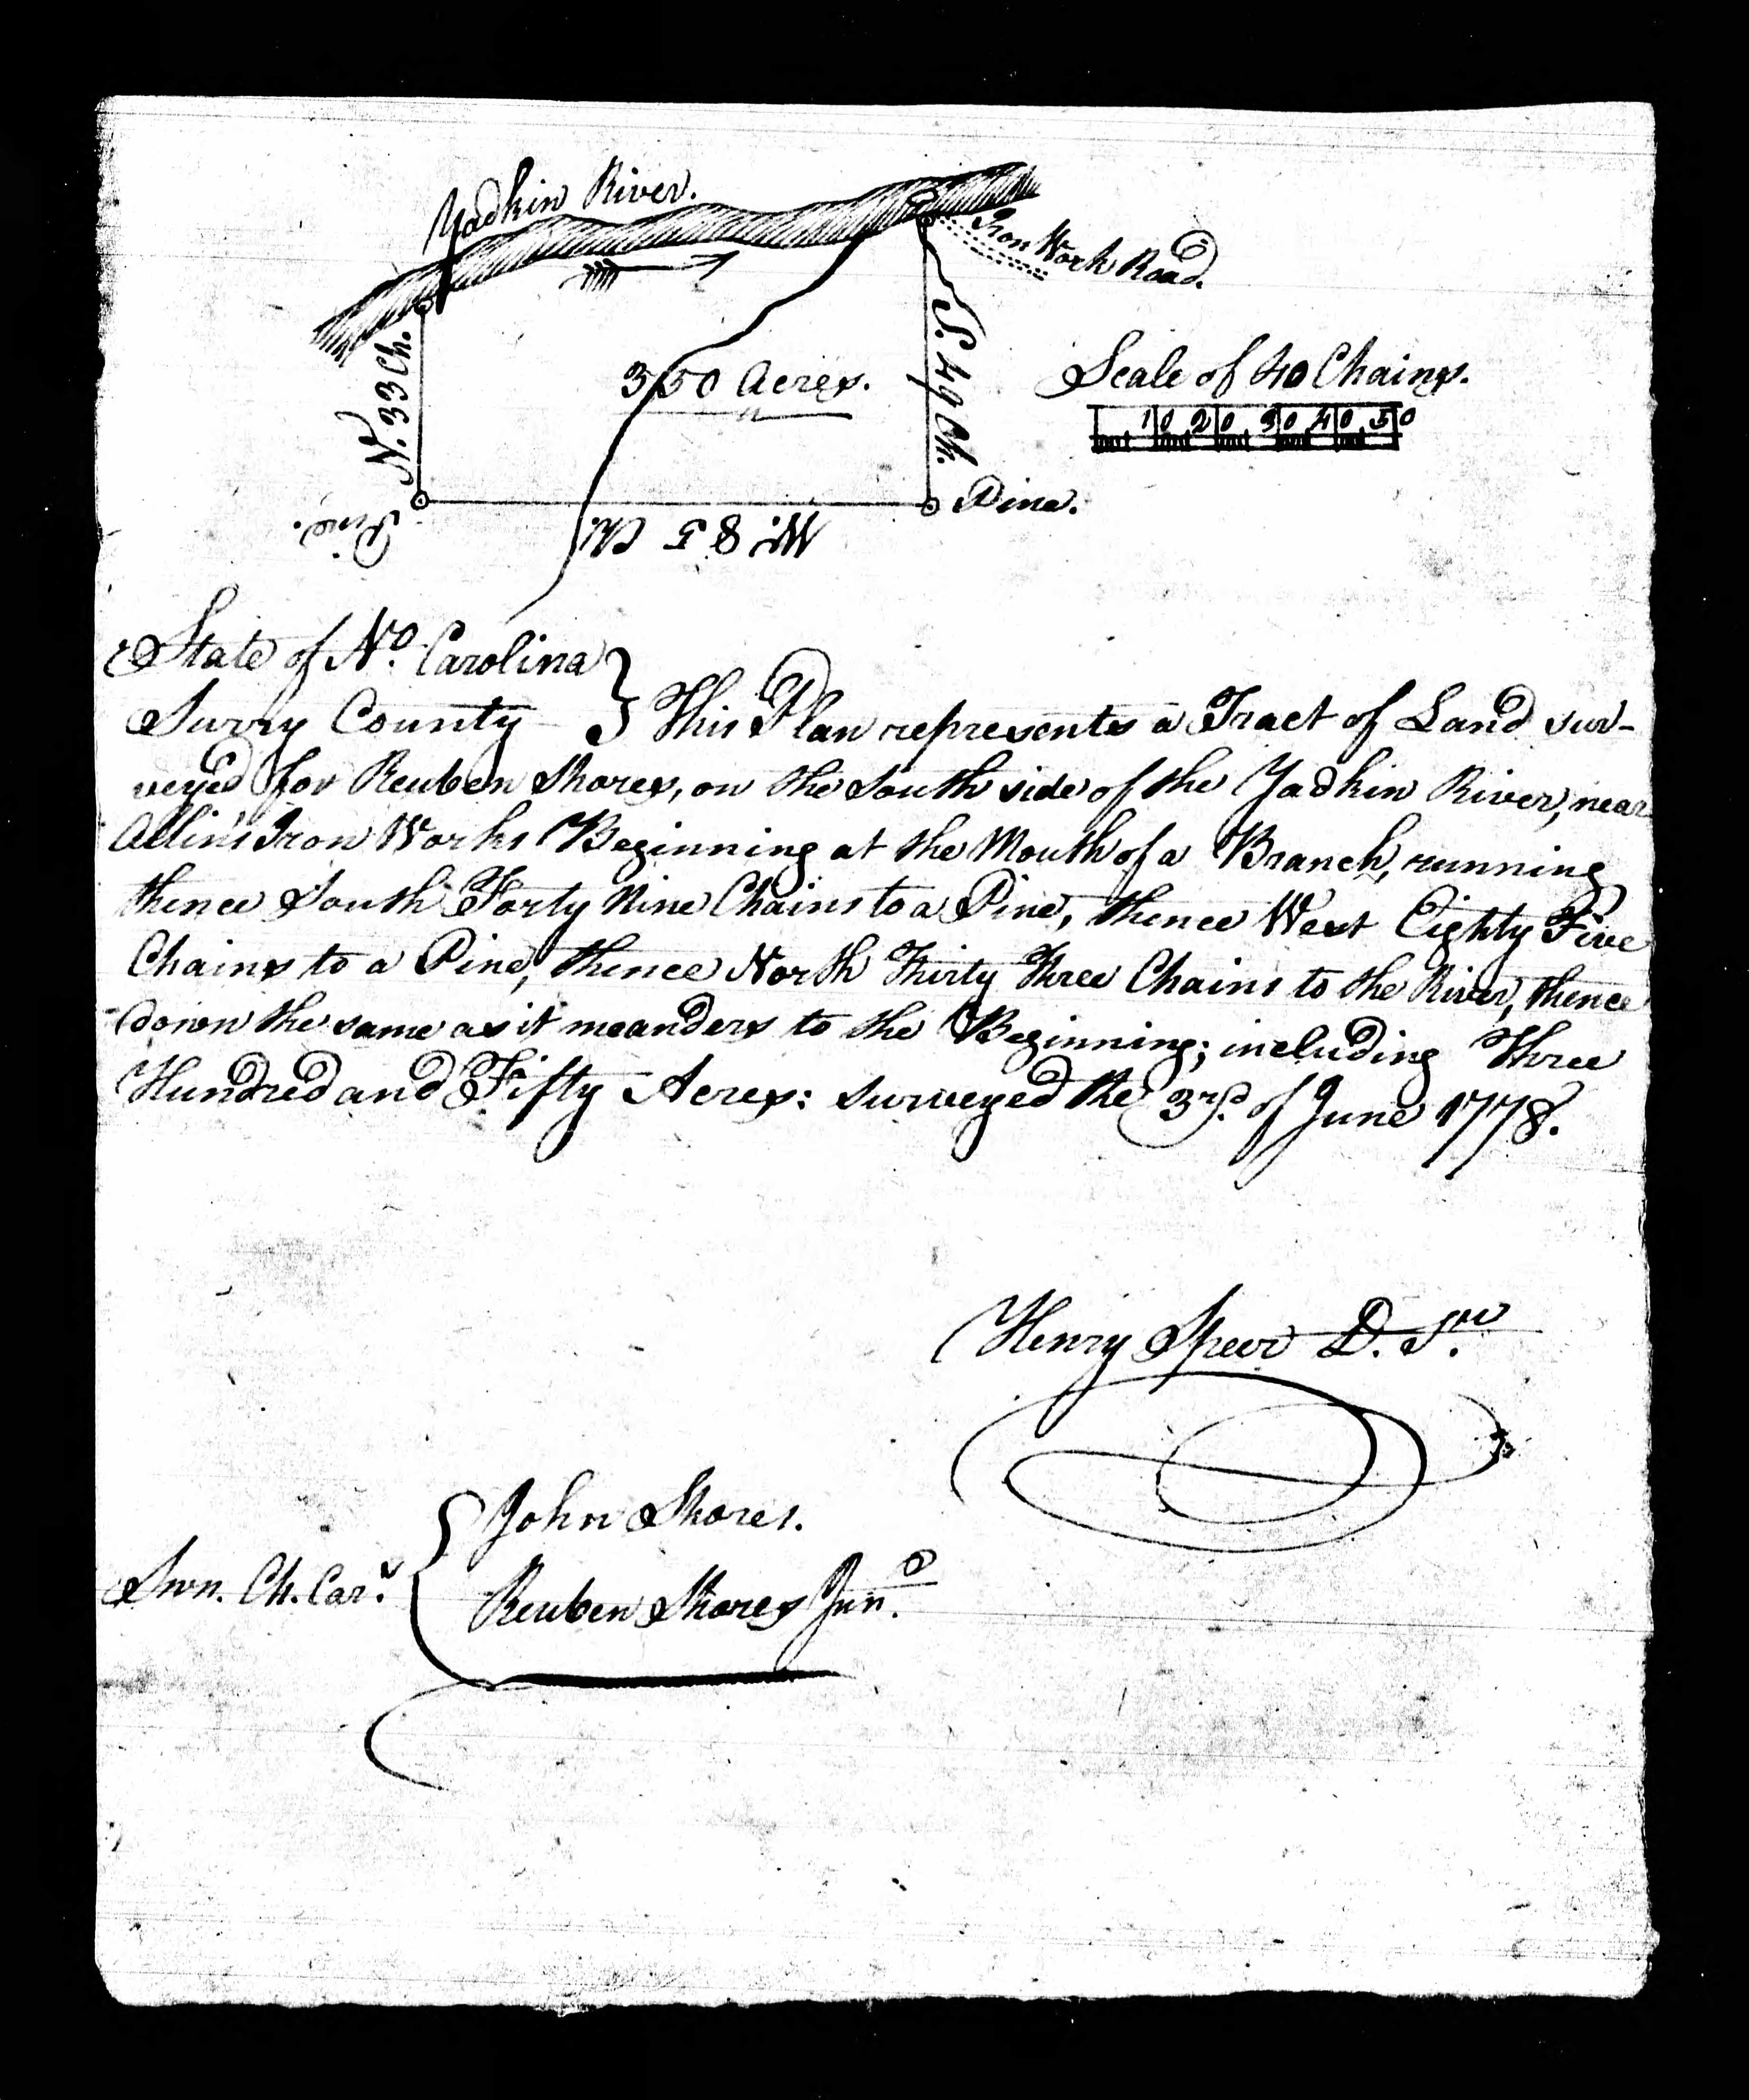 Yadkin River.
Iron Work Road.
N. 33 Ch.
350 Acres.
S. 49 Ch.
Scale of 40 Chains.
10 20 30 40 50
Pine.
Pine.
W. 85 Ch.
State of No. Carolina
Surry County } This Plan represents a Tract of Land sur-
veyed for Reuben Shores, on the South side of the Yadkin River, near
Allin's Iron Works Beginning at the Mouth of a Branch, running
thence South Forty Nine Chains to a Pine, thence West Eighty Five
Chains to a Pine, thence North Thirty Three Chains to the River, thence
down the same as it meanders to the Beginning; including Three
Hundred and Fifty Acres: surveyed the 3rd. of June 1778.
Henry Speer D. Sur.
John Shores.
Swn. Ch. Carrs. {
Reuben Shores Junr.